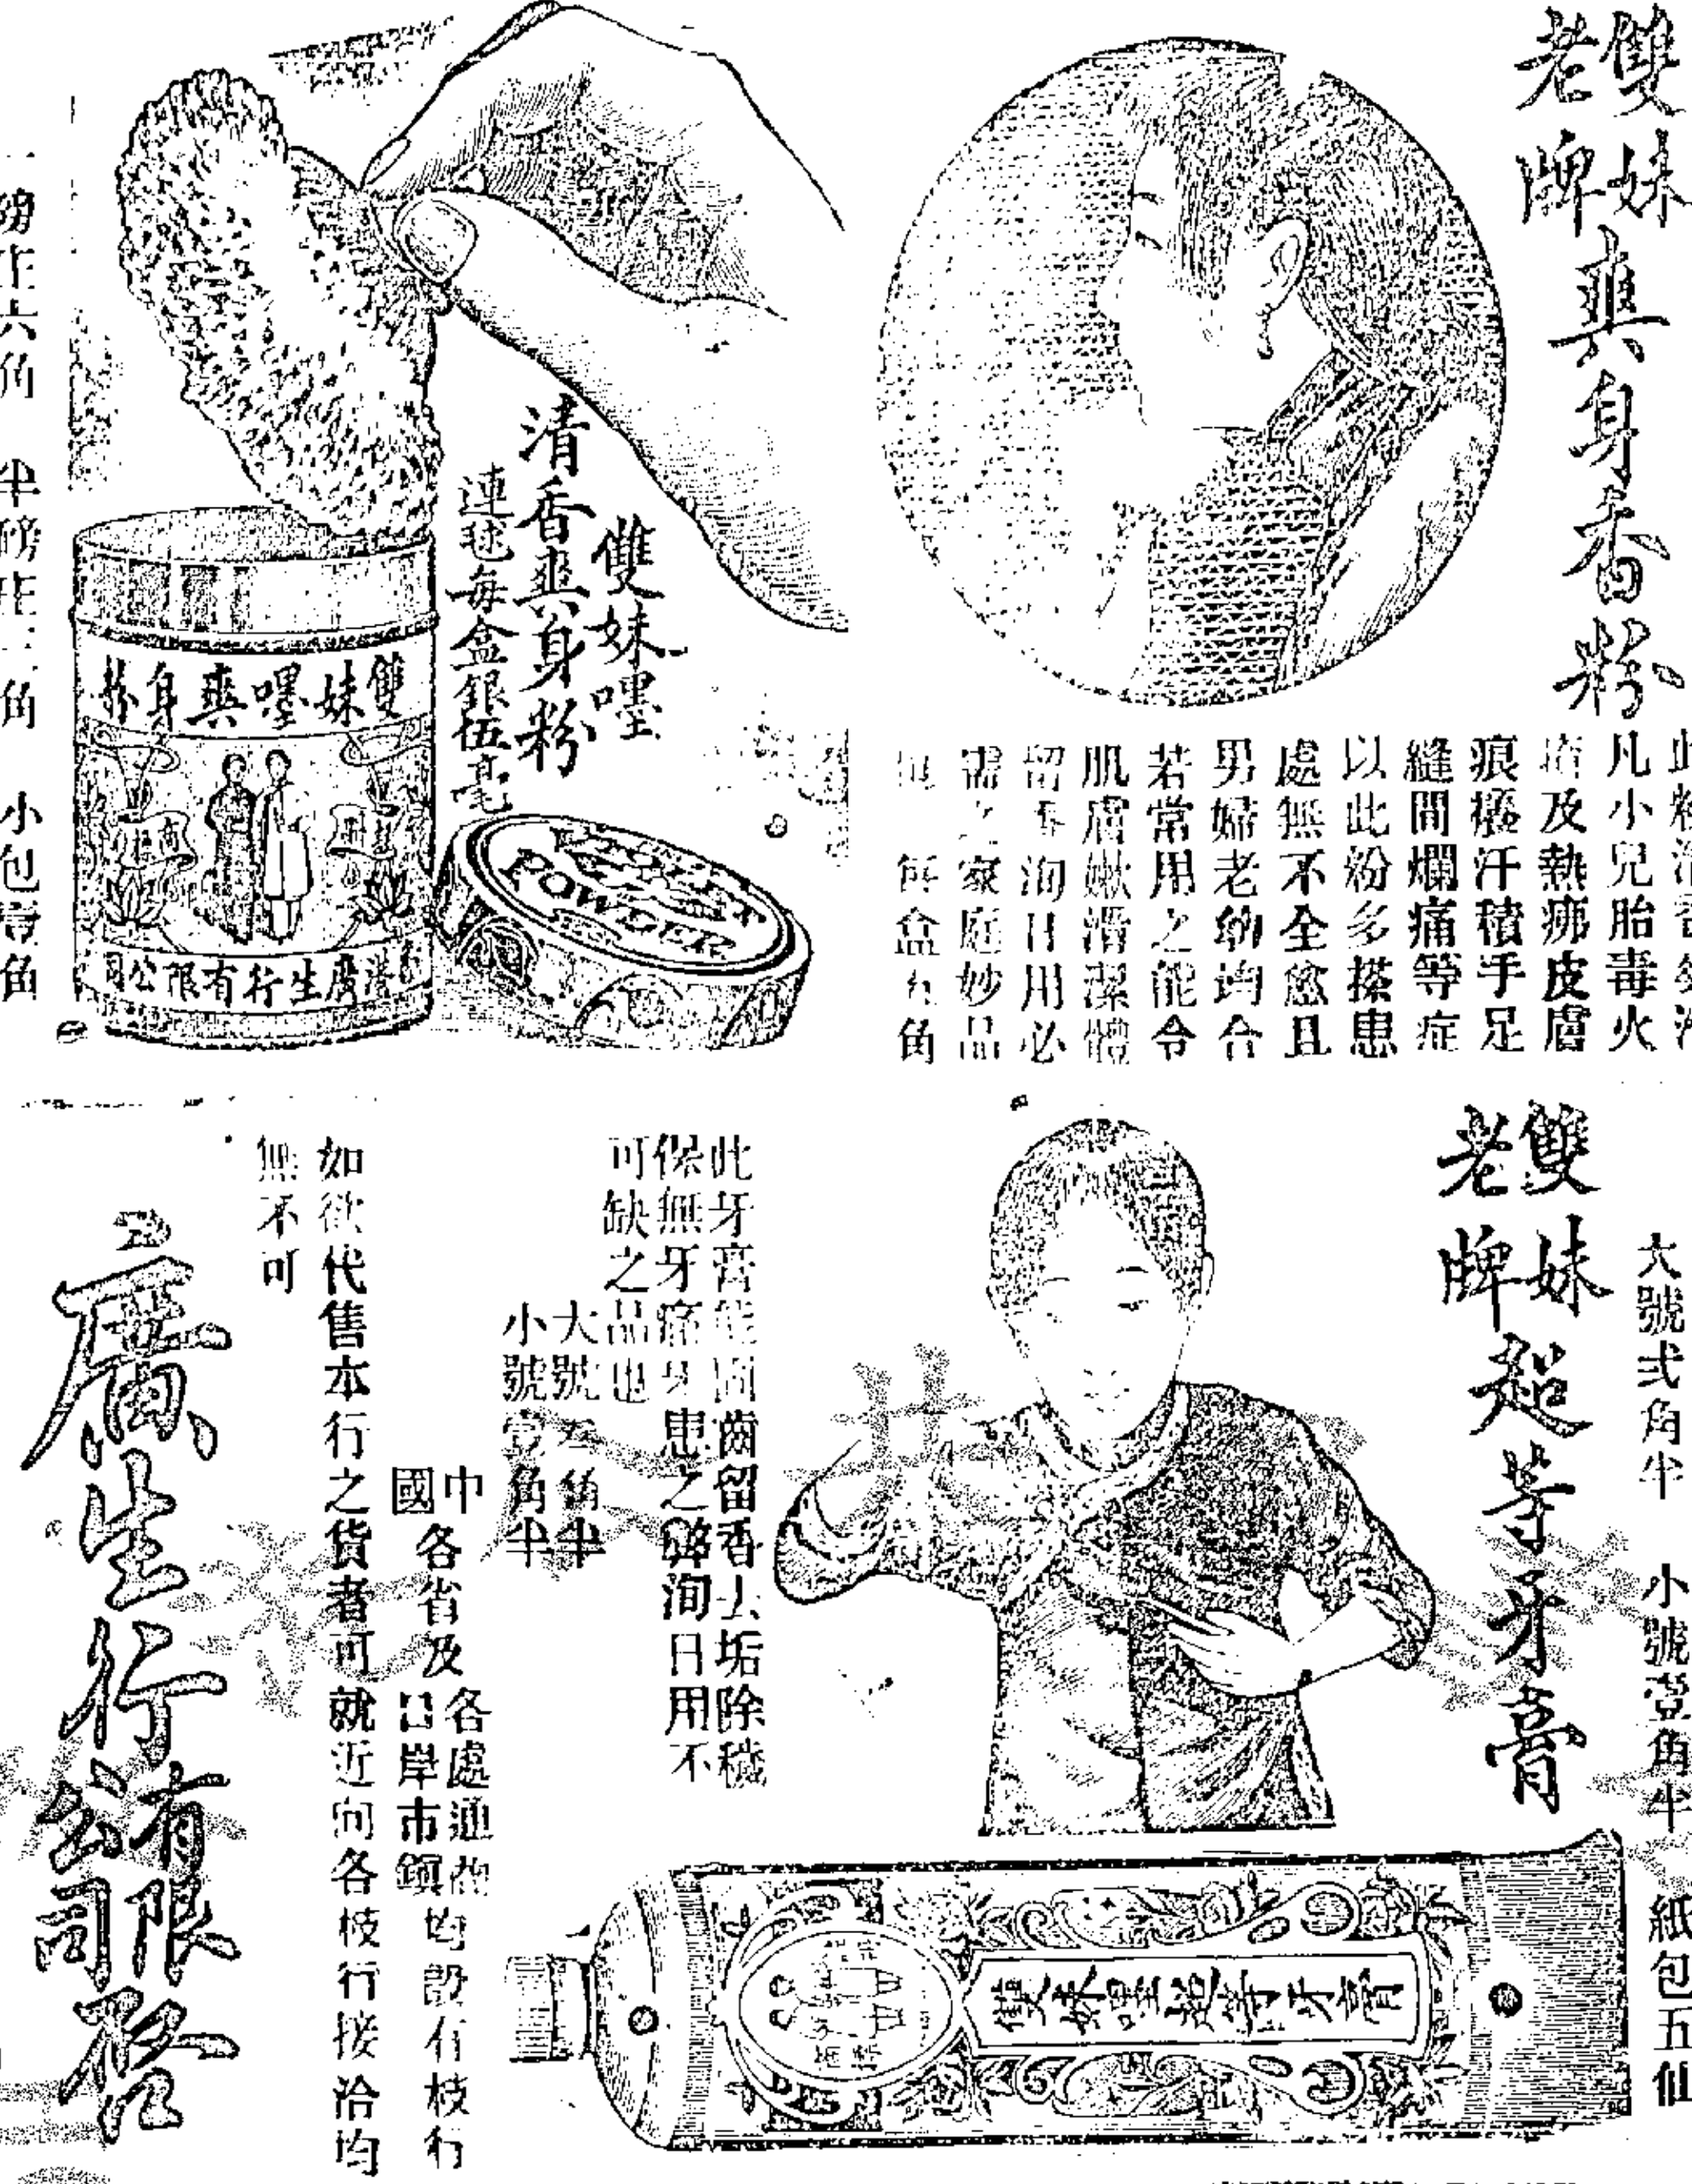 雙妹
老牌
爽身香粉
凡小兒胎毒火
及熱痱皮膚
痕癢汗積手足
縫間爛痛等症
以此粉多搽患
處無不全愈且
男婦老幼均合
若常用之能令
肌膚嫩滑潔體
留香洵日用必
需之家庭妙品
每盒五角
雙妹嘜
清香爽身粉
連毬每盒銀伍毫
雙妹嘜爽身粉
廣生行有限公司
POWDER
六角
半磅庄
角
小包壹角
大號弍角半
小號壹角半
紙包五仙
雙妹
老牌
超等牙膏
雙妹嘜超等牙膏
此牙膏能固齒留香去垢除穢
保無牙痛牙患之弊洵日用不
可缺之品也
大號弍角半
小號壹角半
中國各省及各處通商口岸市鎮均設有枝行
如欲代售本行之貨者可就近向各枝行接洽均
無不可
廣生行有限公司啓